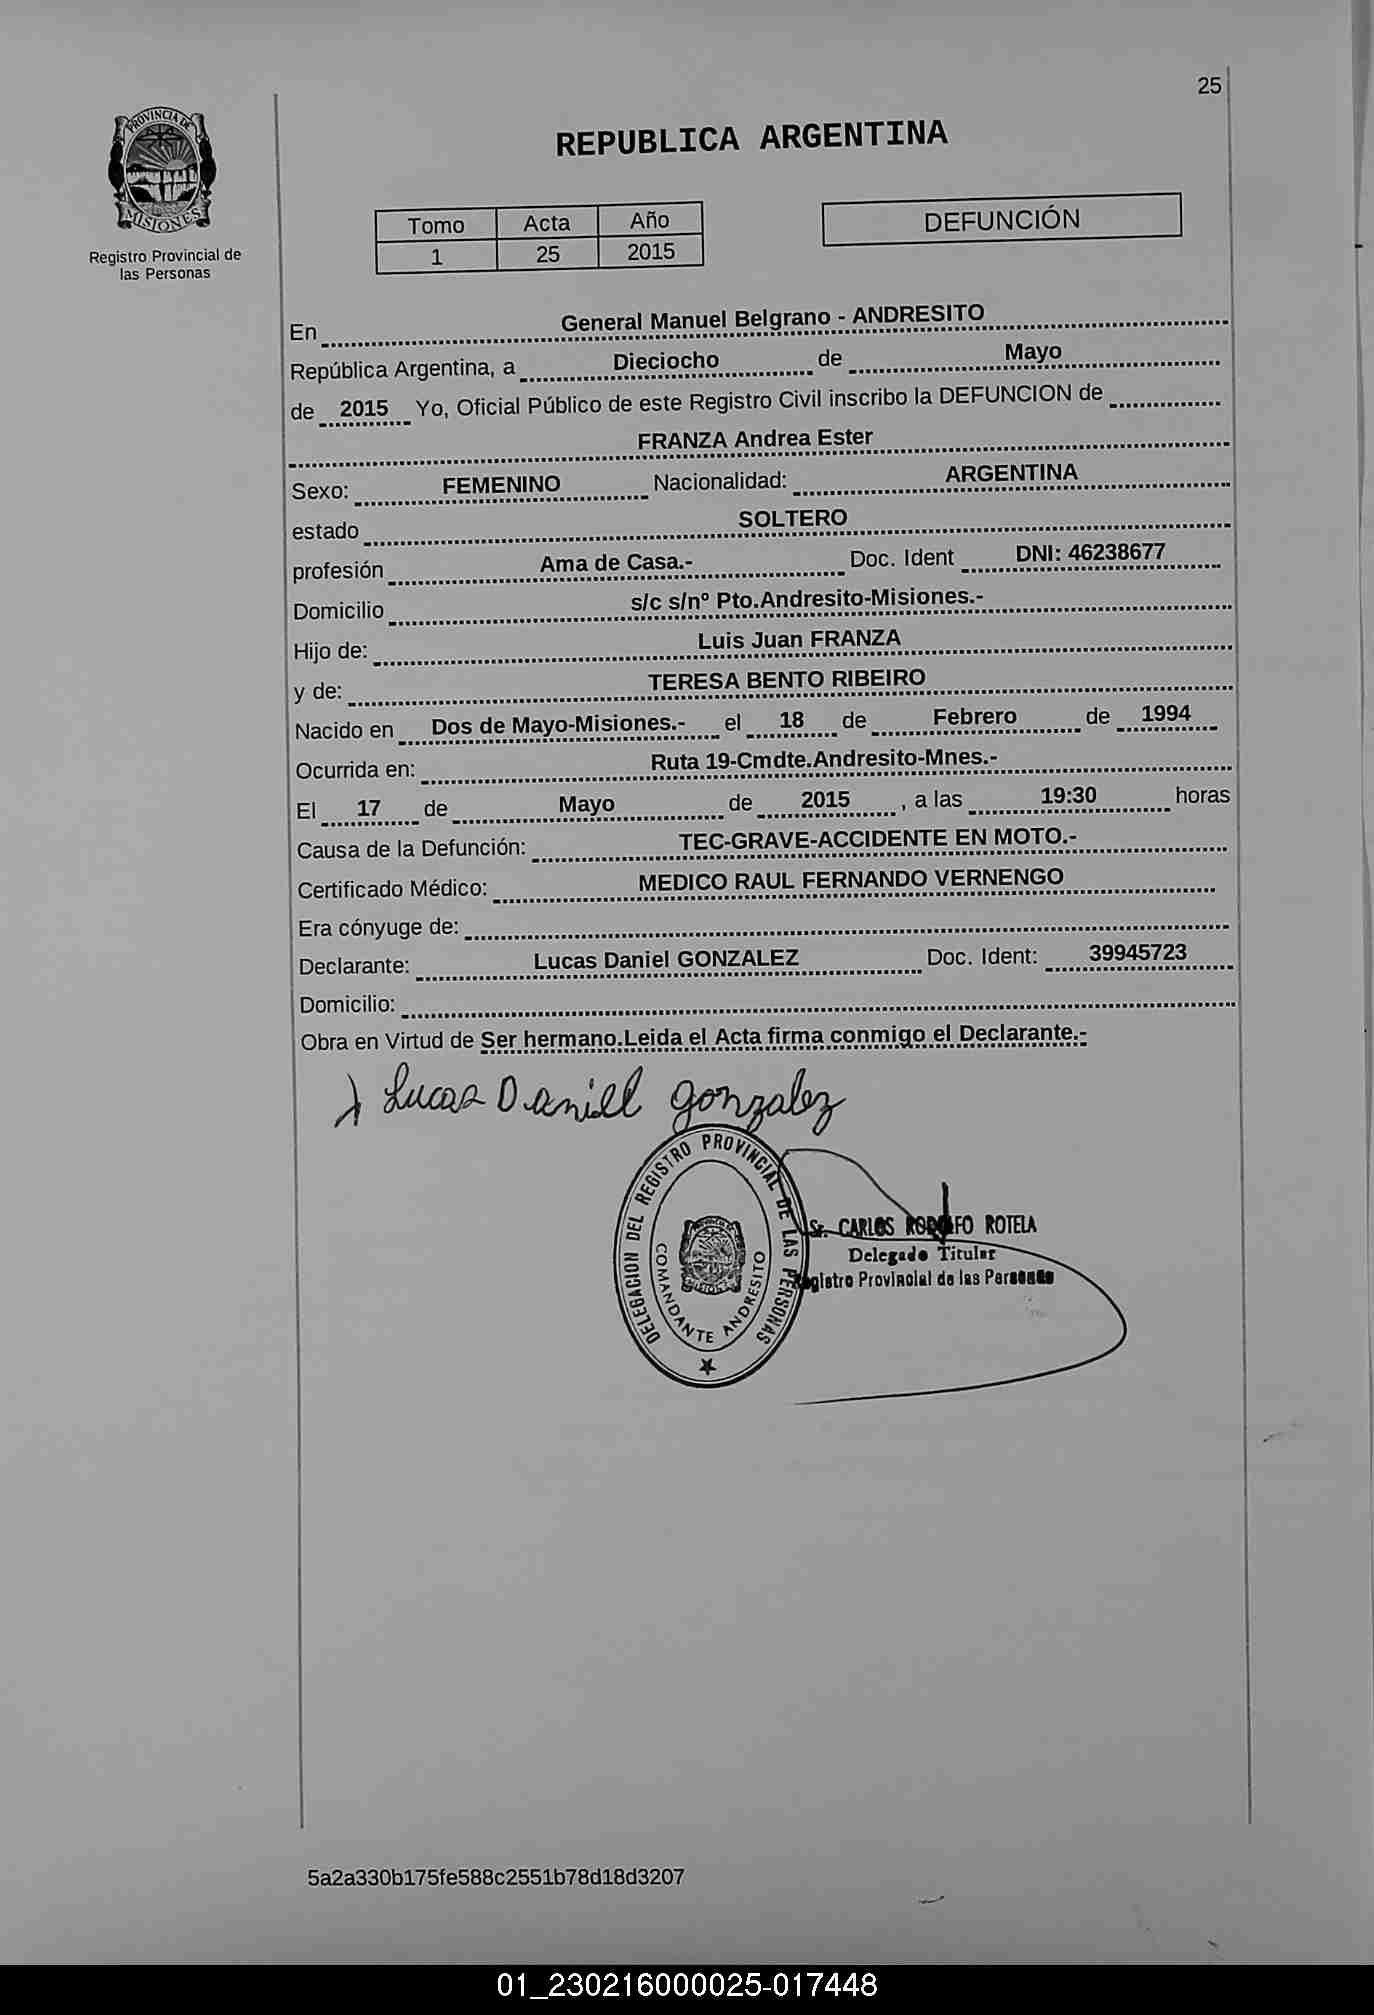 25
PROVINCIA DE
MISIONES
Registro Provincial de
las Personas
REPUBLICA ARGENTINA
Tomo Acta Año
1 25 2015
DEFUNCIÓN
En General Manuel Belgrano - ANDRESITO
República Argentina, a Dieciocho de Mayo
de 2015 Yo, Oficial Público de este Registro Civil inscribo la DEFUNCION de
FRANZA Andrea Ester
Sexo: FEMENINO Nacionalidad: ARGENTINA
estado SOLTERO
profesión Ama de Casa.- Doc. Ident DNI: 46238677
Domicilio s/c s/nº Pto.Andresito-Misiones.-
Hijo de: Luis Juan FRANZA
y de: TERESA BENTO RIBEIRO
Nacido en Dos de Mayo-Misiones.- el 18 de Febrero de 1994
Ocurrida en: Ruta 19-Cmdte.Andresito-Mnes.-
El 17 de Mayo de 2015 , a las 19:30 horas
Causa de la Defunción: TEC-GRAVE-ACCIDENTE EN MOTO.-
Certificado Médico: MEDICO RAUL FERNANDO VERNENGO
Era cónyuge de:
Declarante: Lucas Daniel GONZALEZ Doc. Ident: 39945723
Domicilio:
Obra en Virtud de Ser hermano.Leida el Acta firma conmigo el Declarante.-
Lucas Daniel gonzalez
DELEGACION DEL REGISTRO PROVINCIAL DE LAS PERSONAS
COMANDANTE ANDRESITO
Sr. CARLOS RODOLFO ROTELA
Delegado Titular
Registro Provincial de las Personas
5a2a330b175fe588c2551b78d18d3207
01_230216000025-017448